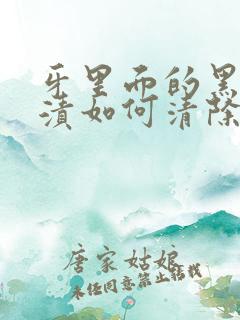 牙里面的黑
渍如何清除
唐家姑娘
未经同意禁止转载